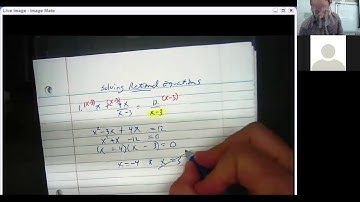 Live Image - Image Mate
Solving Rational Equations
1. (x-3) x (x-3) 4x/x-3 = 12/x-3 (x-3)
x²-3x + 4x = 12
x²+x -12 = 0
(x + 4)(x - 3) = 0
x=-4 x x=3